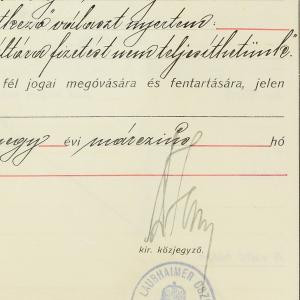 tkező választ nyertem:
fizetést nem teljesíthetünk".
fél jogai megóvására és fentartására, jelen
egy évi márczius hó
kir. közjegyző.
LAUBHAIMER OSZ